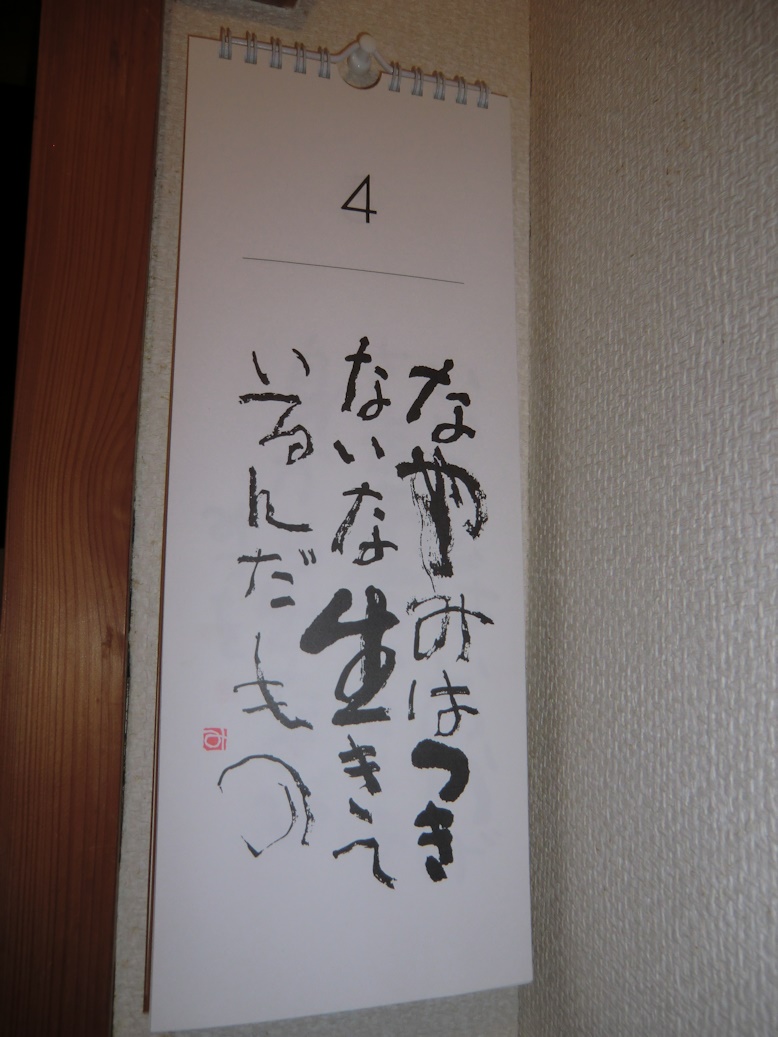 4
なやみはつき
ないな生きて
いるんだもの
み